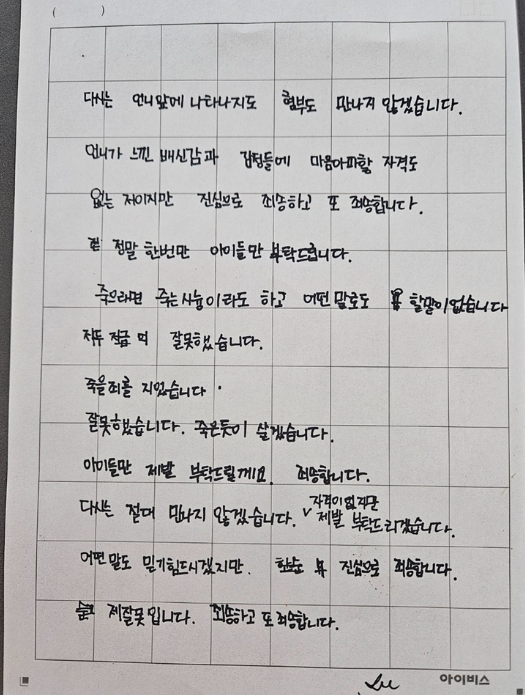 ( )
다시는 언니앞에 나타나지도 형부도 만나지 않겠습니다.
언니가 느낀 배신감과 감정들에 마음아파할 자격도
없는 저이지만 진심으로 죄송하고 또 죄송합니다.
정말 한번만 아이들만 부탁드립니다.
죽으라면 죽는시늉이라도 하고 어떤말로도 할말이없습니다
잘못했습니다.
죽을죄를 지었습니다.
잘못했습니다. 죽은듯이 살겠습니다.
아이들만 제발 부탁드릴게요. 죄송합니다.
자격이없지만
다시는 절대 만나지 않겠습니다. ∨ 제발 부탁드리겠습니다.
어떤말도 믿기힘드시겠지만. 진심으로 죄송합니다.
제잘못입니다. 죄송하고 또죄송합니다.
아이비스